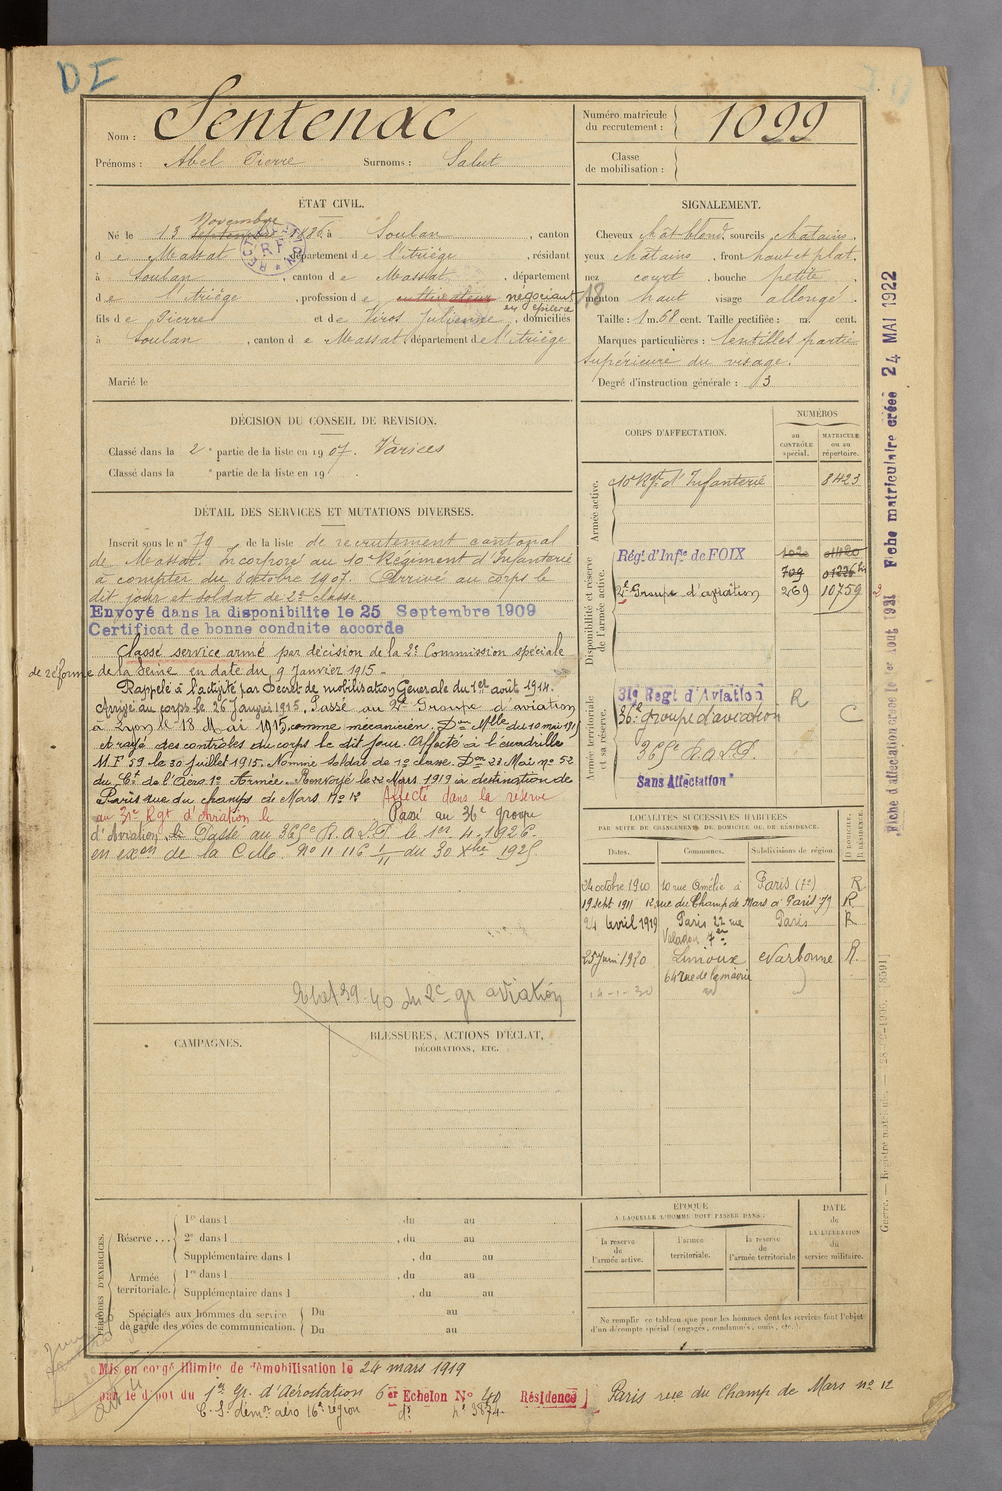 DI
Nom : Sentenac
Prénoms : Abel Pierre Surnoms : Salut
Numéro matricule du recrutement : 1099
Classe de mobilisation :
ÉTAT CIVIL.
Novembre
Né le 13 septembre 1886 à Soulan , canton
de Massat , département de l'Ariège , résidant
à Soulan , canton de Massat , département
de l'Ariège , profession de cultivateur négociant
en épicerie
fils de Pierre et de Viros Julienne , domiciliés
à Soulan , canton de Massat département de l'Ariège
Marié le
RECRUTEMENT RF
SIGNALEMENT.
Cheveux chât blond sourcils chatains .
yeux chatains , front haut et plat.
nez court , bouche petite .
menton haut visage allongé .
Taille : 1 m. 68 cent. Taille rectifiée : m. cent.
Marques particulières : lentilles partie
supérieure du visage.
Degré d'instruction générale : 3
DÉCISION DU CONSEIL DE REVISION.
Classé dans la 2e partie de la liste en 1907. Varices
Classé dans la e partie de la liste en 19 .
DÉTAIL DES SERVICES ET MUTATIONS DIVERSES.
Inscrit sous le n° 79 de la liste de recrutement cantonal
de Massat. Incorporé au 10e Régiment d'Infanterie
à compter du 8 octobre 1907. Arrivé au corps le
dit jour et soldat de 2e classe.
Envoyé dans la disponibilite le 25 Septembre 1909
Certificat de bonne conduite accorde
Classé service armé par décision de la 2e Commission spéciale
de réforme de la Seine en date du 9 Janvier 1915 -
Rappelé à l'activité par Décret de mobilisation Générale du 1er août 1914.
Arrivé au corps le 26 Janvier 1915, Passé au 2e Groupe d'aviation
à Lyon le 18 Mai 1915, comme mécanicien. Don Mlle du 10 mai 1915
et rayé des contrôles du corps le dit jour. Affecté à l'escadrille
M.F 59 le 30 juillet 1915. Nommé Soldat de 1e classe Don 28 Mai n° 52
du Ct de l'Aéro 1e Armée. Renvoyé le 22 Mars 1919 à destination de
Paris rue du champs de Mars N° 12 Affecté dans la réserve
au 31e Rgt d'Aviation le Passé au 36e groupe
d'Aviation le Passé au 365e R.A.L.P. le 1er 4-1926-
en exon de la C.M. N° 11 116 1/11 du 30 Xbre 1925.
Rhaf 39-40 du 2e gr aviation
CORPS D'AFFECTATION.
NUMÉROS
au CONTRÔLE spécial.
MATRICULE ou au répertoire.
Armée active.
10e Rgt d'Infanterie 8423
Disponibilité et réserve de l'armée active.
Régt d'Infie de FOIX 102 01420
709 01226
2e Groupe d'aviation 269 10759
Armée territoriale et sa réserve.
31e Regt d'Aviation R
36e groupe d'aviation C
365e R.A.L.P.
Sans Affectation
LOCALITÉS SUCCESSIVES HABITÉES
PAR SUITE DE CHANGEMENTS DE DOMICILE OU DE RÉSIDENCE.
Dates. Communes. Subdivisions de région
D DOMICILE. R RÉSIDENCE.
24 octobre 1910 10 rue Amélie à Paris (7e) R
19 Sept 1911 12, rue du Champ de Mars à Paris 7e R
24 Avril 1919 Paris 22 rue Paris R
Valadon 7e
25 Juin 1920 Limoux Narbonne R.
64 rue de la mairie
14-1-30
CAMPAGNES.
BLESSURES, ACTIONS D'ÉCLAT,
DÉCORATIONS, ETC.
PÉRIODES D'EXERCICES.
Réserve . . . 1re dans l , du au
2e dans l , du au
Supplémentaire dans l , du au
Armée territoriale. 1re dans l , du au
Supplémentaire dans l , du au
Spéciales aux hommes du service de garde des voies de communication. Du au
Du au
ÉPOQUE
À LAQUELLE L'HOMME DOIT PASSER DANS :
la réserve de l'armée active.
l'armée territoriale.
la réserve de l'armée territoriale
DATE de LA LIBÉRATION du service militaire.
Ne remplir ce tableau que pour les hommes dont les services font l'objet
d'un décompte spécial (engagés, condamnés, omis, etc.).
Mis en congé illimité de démobilisation le 24 mars 1919
par le dépot du 1er Gr. d'Aérostation 6er Echelon N° 40 Résidence Paris rue du Champ de Mars n° 12
C. S. démre aéro 16e région d° n° 3874.
Fiche d'affectation créée le 1er Aout 1931 Fiche matriculaire créée 24 MAI 1922